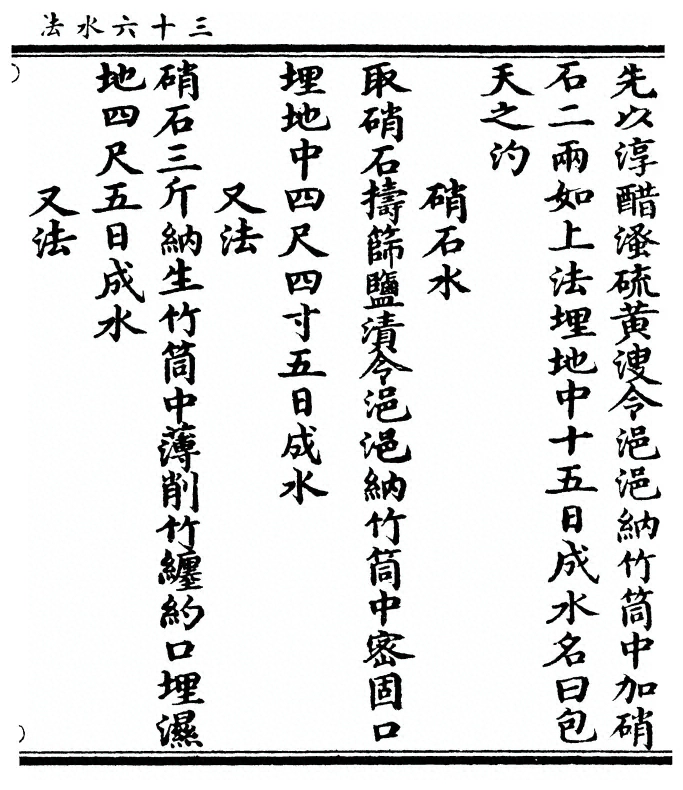 三十六水法
先以淳醋溞硫黄溲令浥浥納竹筒中加硝
石二兩如上法埋地中十五日成水名曰包
天之汋
硝石水
取硝石擣篩鹽漬令浥浥納竹筒中密固口
埋地中四尺四寸五日成水
又法
硝石三斤納生竹筒中薄削竹纏約口埋濕
地四尺五日成水
又法